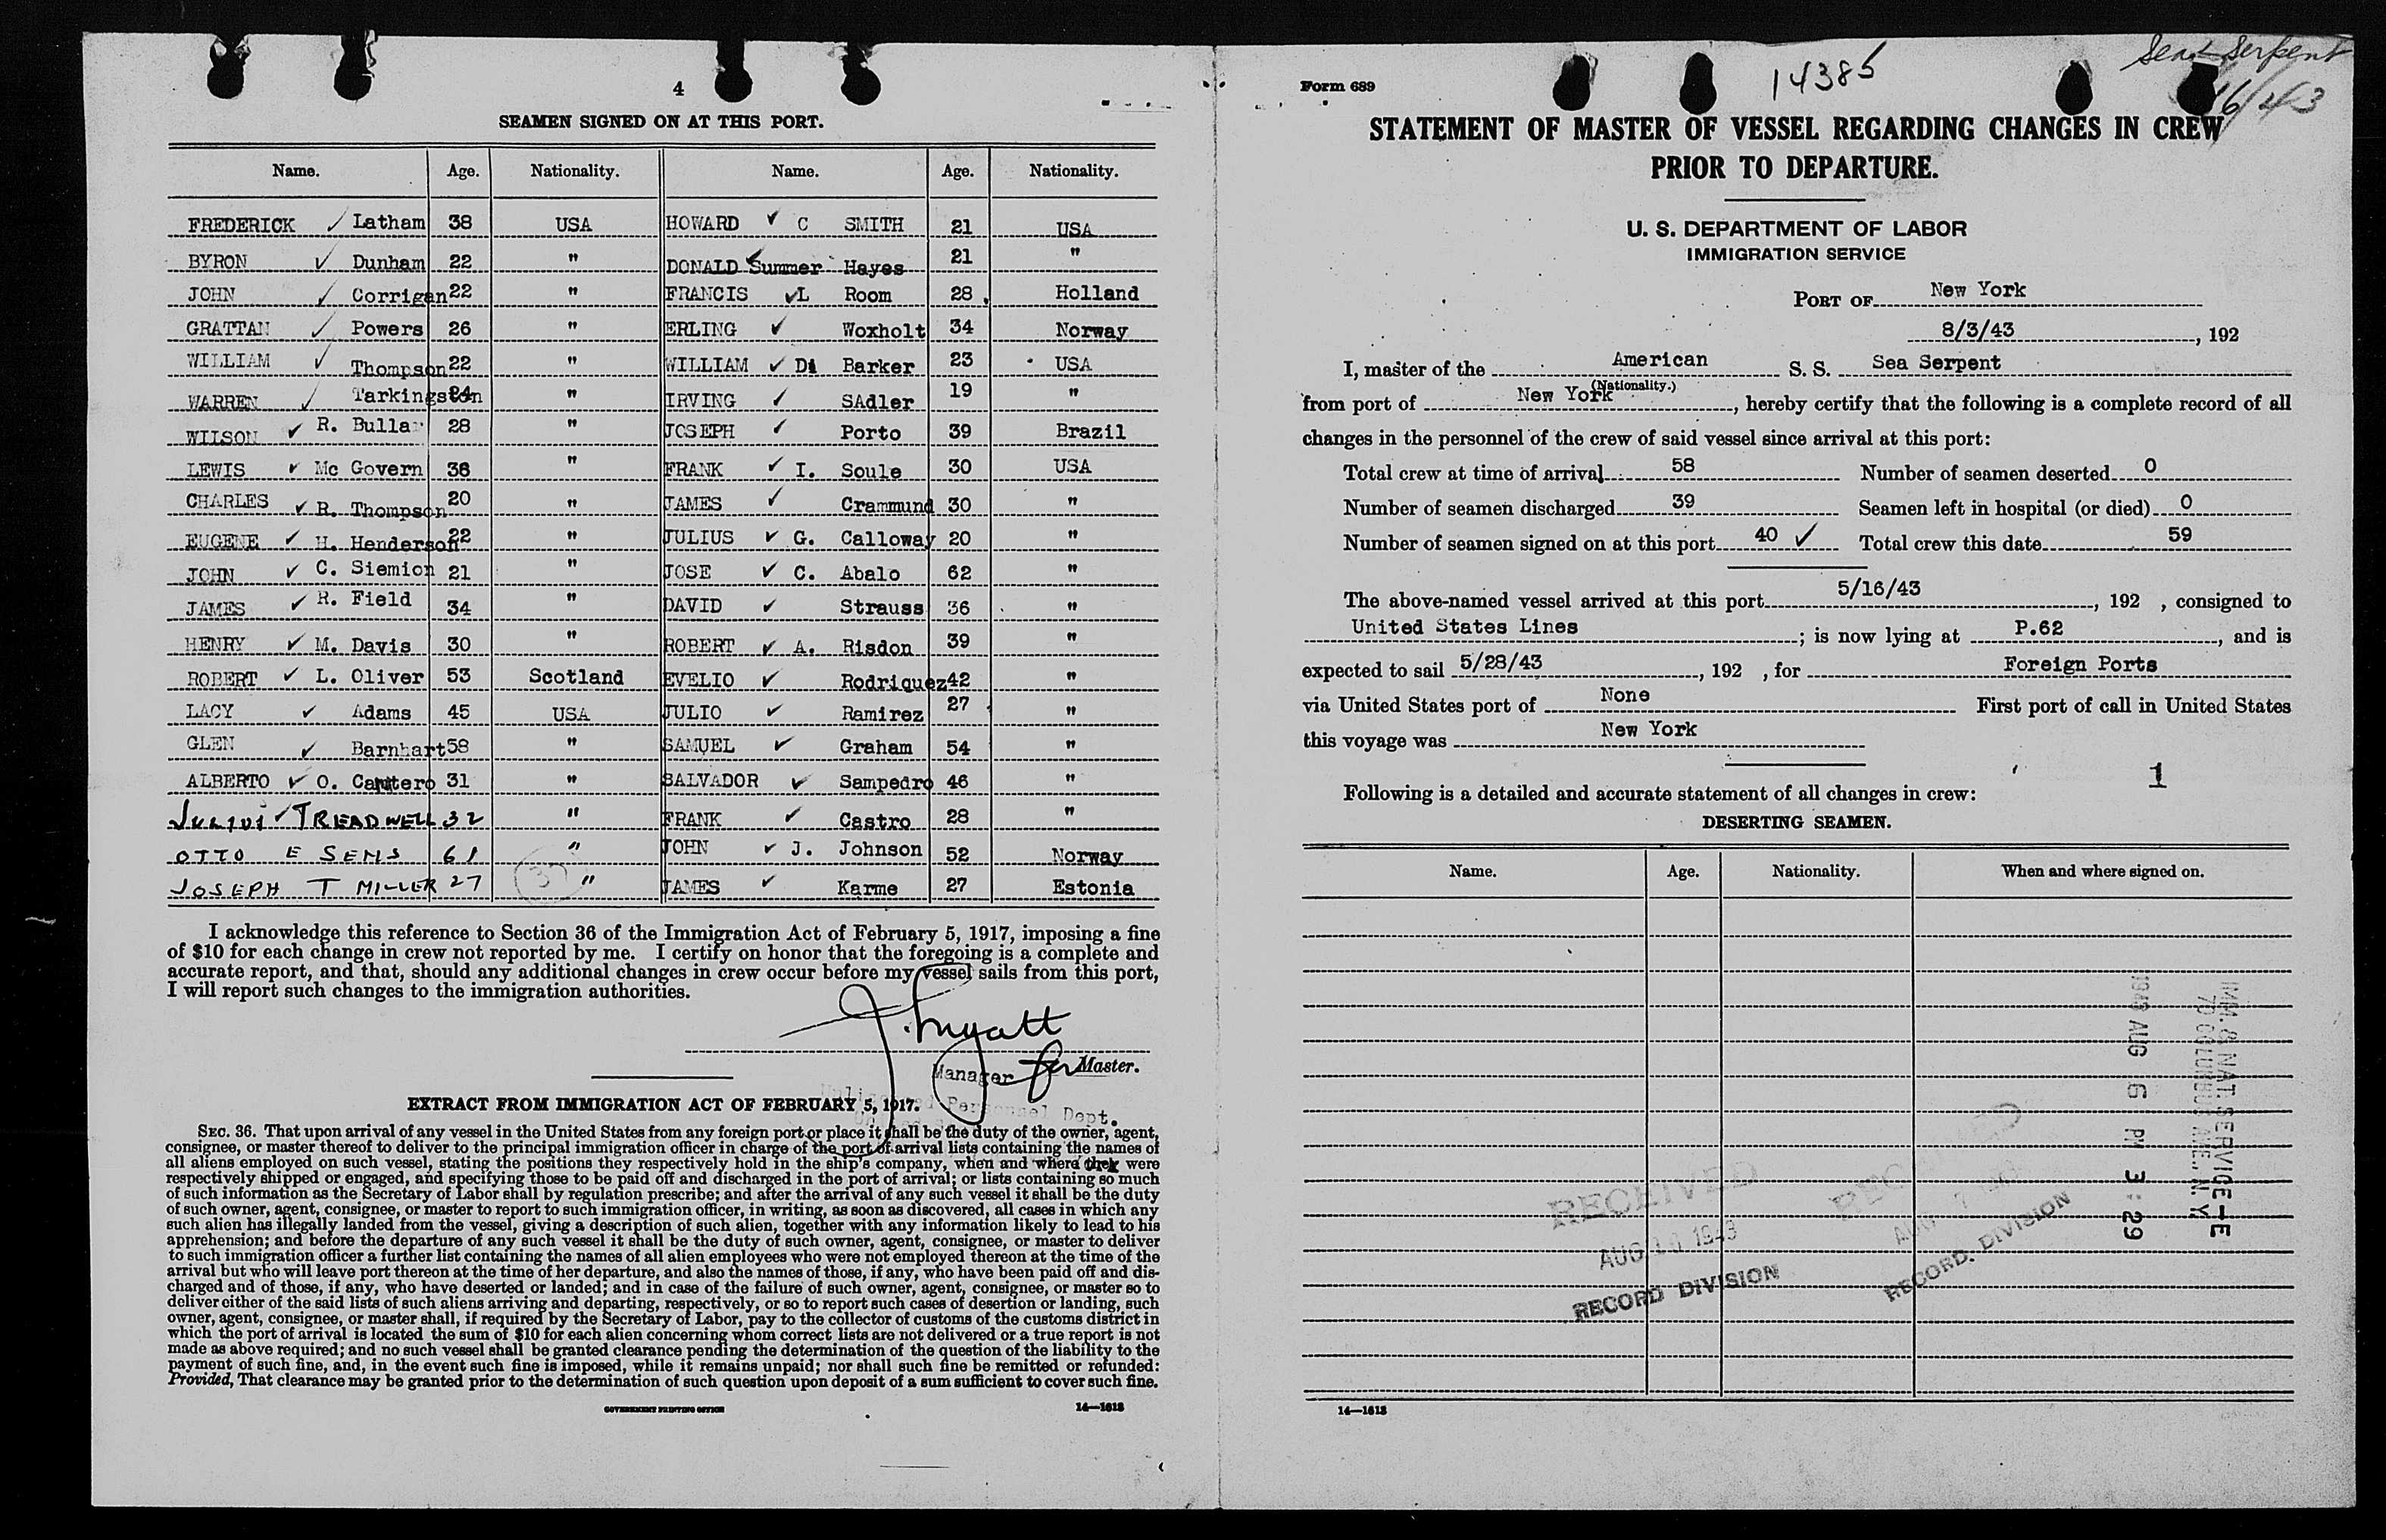 4
SEAMEN SIGNED ON AT THIS PORT.
Name. Age. Nationality. Name. Age. Nationality.
FREDERICK ✓ Latham 38 USA HOWARD ✓ C SMITH 21 USA
BYRON ✓ Dunham 22 " DONALD Summer Hayes 21 "
JOHN ✓ Corrigan 22 " FRANCIS ✓ L Room 28 Holland
GRATTAN ✓ Powers 26 " ERLING ✓ Woxholt 34 Norway
WILLIAM ✓ Thompson 22 " WILLIAM ✓ Di Barker 23 USA
WARREN ✓ Tarkingston " IRVING ✓ SAdler 19 "
WILSON ✓ R. Bullar 28 " JOSEPH ✓ Porto 39 Brazil
LEWIS ✓ Mc Govern 36 " FRANK ✓ I. Soule 30 USA
CHARLES ✓ R. Thompson 20 " JAMES ✓ Crammund 30 "
EUGENE ✓ H. Henderson 22 " JULIUS ✓ G. Calloway 20 "
JOHN ✓ C. Siemion 21 " JOSE ✓ C. Abalo 62 "
JAMES ✓ R. Field 34 " DAVID ✓ Strauss 36 "
HENRY ✓ M. Davis 30 " ROBERT ✓ A. Risdon 39 "
ROBERT ✓ L. Oliver 53 Scotland EVELIO ✓ Rodriquez 42 "
LACY ✓ Adams 45 USA JULIO ✓ Ramirez 27 "
GLEN ✓ Barnhart 58 " SAMUEL ✓ Graham 54 "
ALBERTO ✓ O. 31 " SALVADOR ✓ Sampedro 46 "
JULIUS ✓ TREADWELL 32 " FRANK ✓ Castro 28 "
OTTO E SEMS 61 " JOHN ✓ J. Johnson 52 Norway
JOSEPH T MILLER 27 " JAMES ✓ Karme 27 Estonia
I acknowledge this reference to Section 36 of the Immigration Act of February 5, 1917, imposing a fine
of $10 for each change in crew not reported by me. I certify on honor that the foregoing is a complete and
accurate report, and that, should any additional changes in crew occur before my vessel sails from this port,
I will report such changes to the immigration authorities.
J. Myatt
Manager for Master.
Personnel Dept.
EXTRACT FROM IMMIGRATION ACT OF FEBRUARY 5, 1917.
SEC. 36. That upon arrival of any vessel in the United States from any foreign port or place it shall be the duty of the owner, agent,
consignee, or master thereof to deliver to the principal immigration officer in charge of the port of arrival lists containing the names of
all aliens employed on such vessel, stating the positions they respectively hold in the ship's company, when and where they were
respectively shipped or engaged, and specifying those to be paid off and discharged in the port of arrival; or lists containing so much
of such information as the Secretary of Labor shall by regulation prescribe; and after the arrival of any such vessel it shall be the duty
of such owner, agent, consignee, or master to report to such immigration officer, in writing, as soon as discovered, all cases in which any
such alien has illegally landed from the vessel, giving a description of such alien, together with any information likely to lead to his
apprehension; and before the departure of any such vessel it shall be the duty of such owner, agent, consignee, or master to deliver
to such immigration officer a further list containing the names of all alien employees who were not employed thereon at the time of the
arrival but who will leave port thereon at the time of her departure, and also the names of those, if any, who have been paid off and dis-
charged and of those, if any, who have deserted or landed; and in case of the failure of such owner, agent, consignee, or master so to
deliver either of the said lists of such aliens arriving and departing, respectively, or so to report such cases of desertion or landing, such
owner, agent, consignee, or master shall, if required by the Secretary of Labor, pay to the collector of customs of the customs district in
which the port of arrival is located the sum of $10 for each alien concerning whom correct lists are not delivered or a true report is not
made as above required; and no such vessel shall be granted clearance pending the determination of the question of the liability to the
payment of such fine, and, in the event such fine is imposed, while it remains unpaid; nor shall such fine be remitted or refunded:
Provided, That clearance may be granted prior to the determination of such question upon deposit of a sum sufficient to cover such fine.
GOVERNMENT PRINTING OFFICE 14—1618
Sea Serpent
Form 689 14385
STATEMENT OF MASTER OF VESSEL REGARDING CHANGES IN CREW
PRIOR TO DEPARTURE.
U. S. DEPARTMENT OF LABOR
IMMIGRATION SERVICE
PORT OF New York
8/3/43, 192
I, master of the American S. S. Sea Serpent
(Nationality.)
from port of New York, hereby certify that the following is a complete record of all
changes in the personnel of the crew of said vessel since arrival at this port:
Total crew at time of arrival 58 Number of seamen deserted 0
Number of seamen discharged 39 Seamen left in hospital (or died) 0
Number of seamen signed on at this port 40 ✓ Total crew this date 59
The above-named vessel arrived at this port 5/16/43, 192 , consigned to
United States Lines; is now lying at P.62, and is
expected to sail 5/28/43, 192 , for Foreign Ports
via United States port of None First port of call in United States
this voyage was New York
1
Following is a detailed and accurate statement of all changes in crew:
DESERTING SEAMEN.
Name. Age. Nationality. When and where signed on.
IMM. & NAT. SERVICE—E
70 COLUMBUS AVE., N. Y.
1943 AUG 6 PM 3:29
RECEIVED
AUG 10 1943
RECORD DIVISION
RECORD DIVISION
14—1618